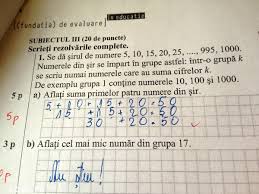 (fundația) de evaluare în educație
SUBIECTUL III (20 de puncte)
Scrieți rezolvările complete.
1. Se dă șirul de numere 5, 10, 15, 20, 25, ....., 995, 1000.
Numerele din șir se împart în grupe astfel: într-o grupă k
se scriu numai numerele care au suma cifrelor k.
De exemplu grupa 1 conține numerele 10, 100 și 1000.
5 p a) Aflați suma primelor patru numere din șir.
5+10+15+20=50
5p 15+15+20=50
30+20=50
3 p b) Aflați cel mai mic număr din grupa 17.
Nu știu!